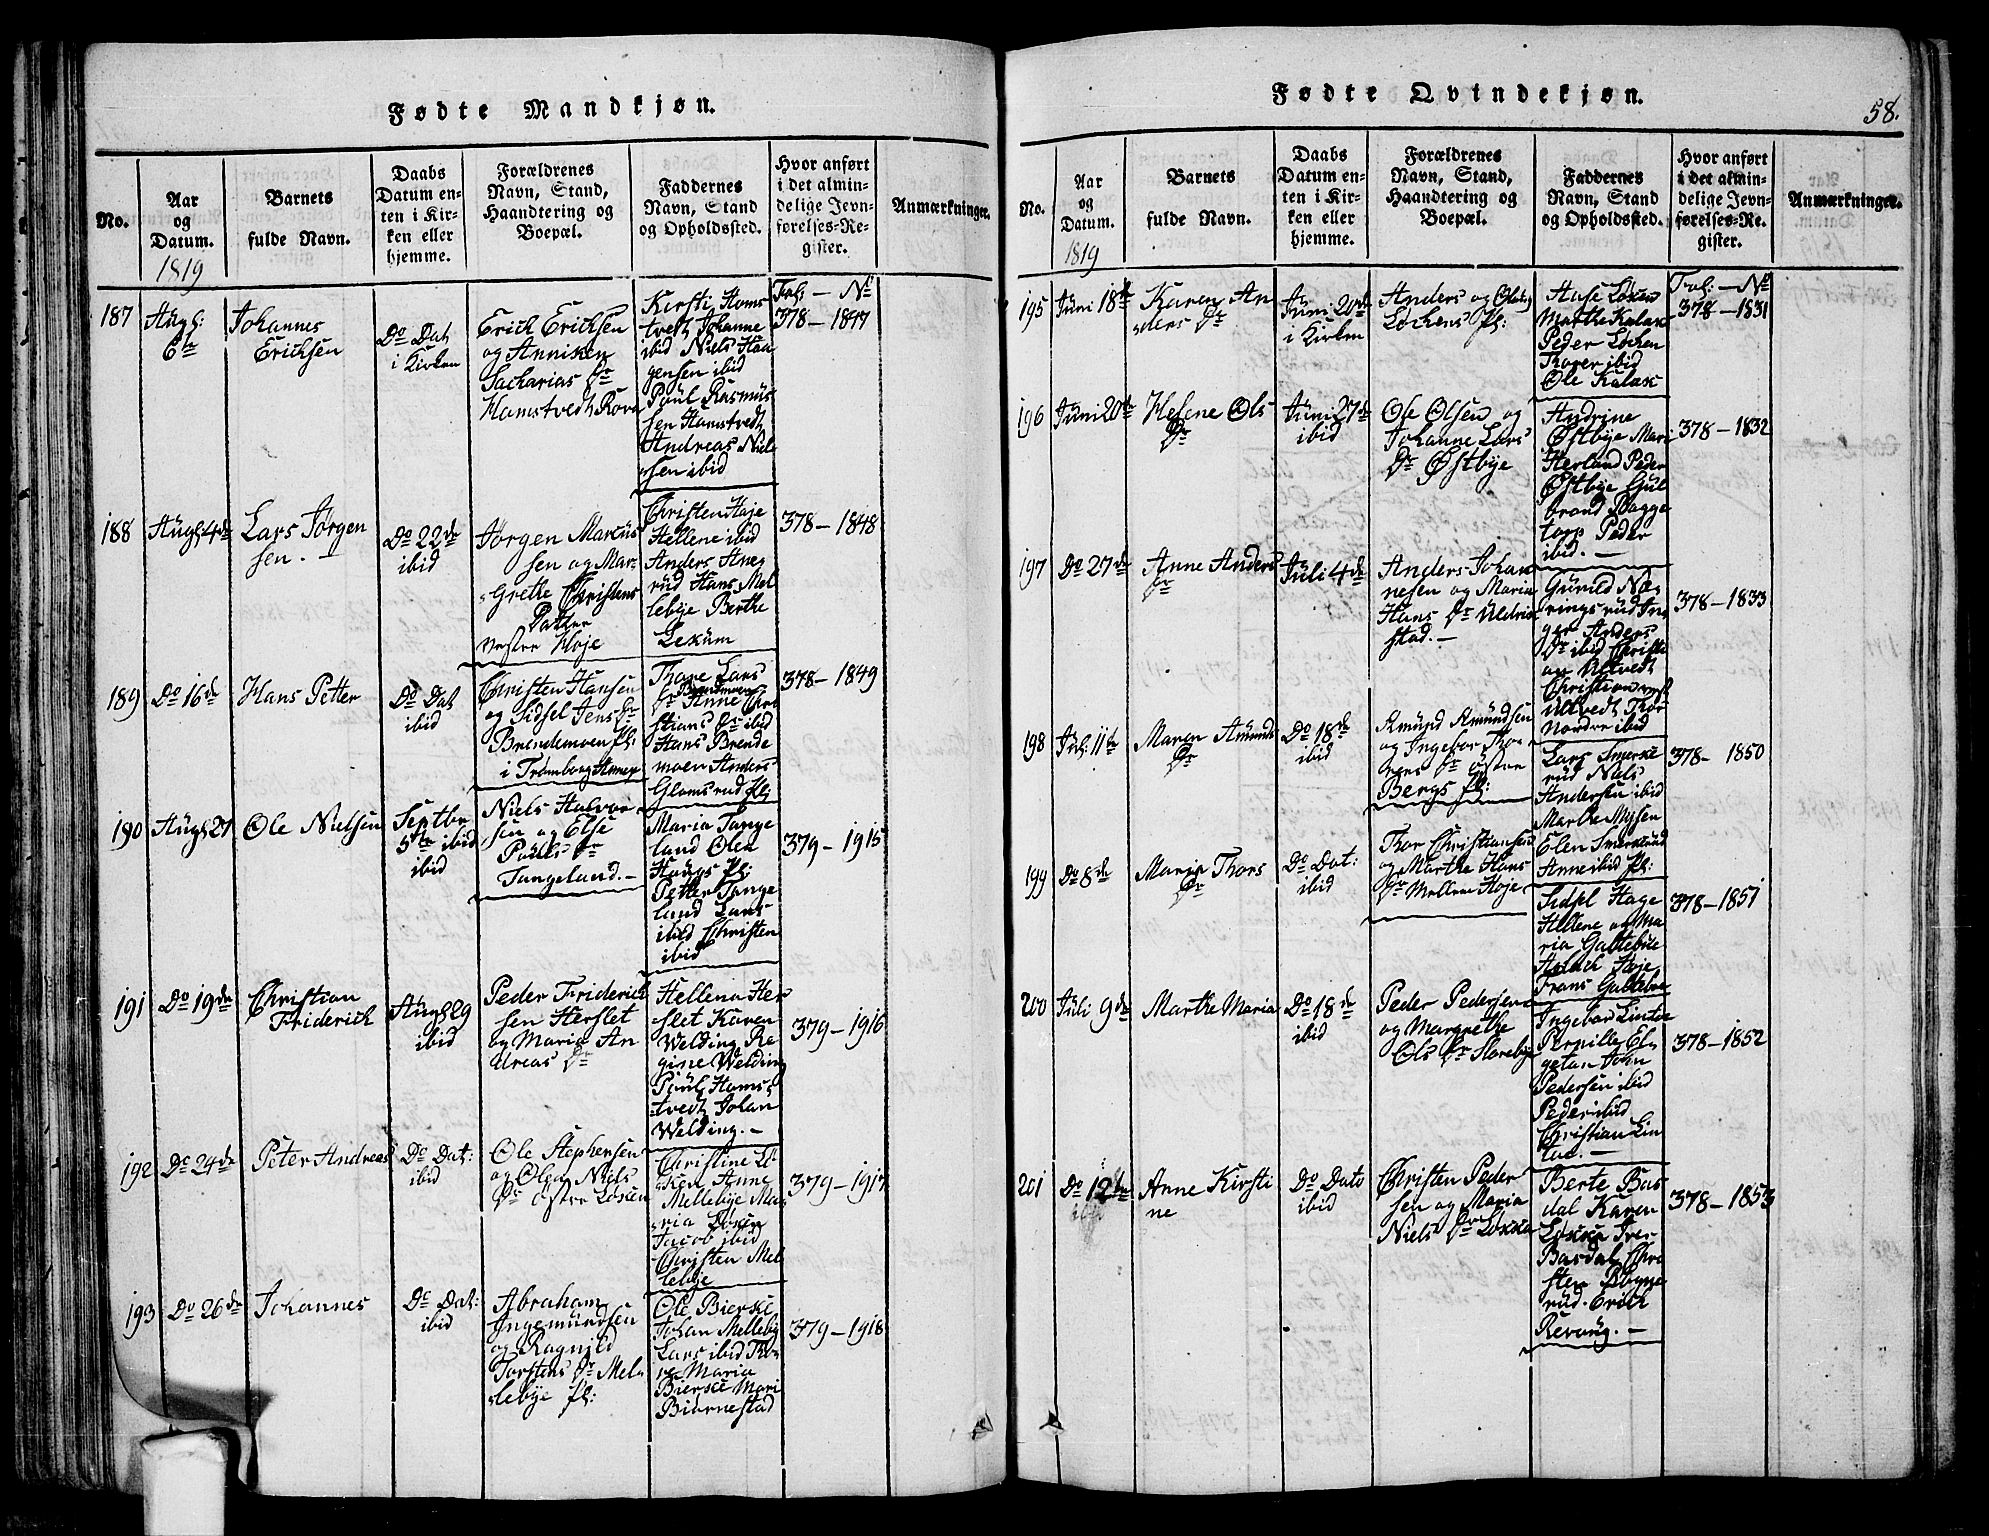 Fødte Mandkjøn.
No.
Aar
og
Datum.
1819
Barnets
fulde Navn.
Daabs
Datum en-
ten i Kir-
ken eller
hjemme.
Forældrenes
Navn, Stand,
Haandtering og
Boepæl.
Faddernes
Navn, Stand
og Opholdssted.
Hvor anført
i det almin-
delige Jevn-
førelses-Re-
gister.
Anmærkninger.
187
Augs:
6te
Johannes
Erichsen
Do Dat
i Kirken
Erich Erichsen
og Anniken
Sacharias Dr
Hamstvedt Rova
Kirsti Homs
tvedt Johanne
ibid Niels Haa
gensen ibid
Poul Rasmus
sen Homstvedt
Andreas Niel
sen ibid
Fol: — No
378 — 1847
188
Augs 4de
Lars Jørgen
sen. —
Do 22de
ibid
Jørgen Marcus
sen og Mar-
grethe Christens
Datter
vestre Høje
Christen Høje
Hellene ibid
Anders Aneg
rud Hans Mel
lebye Berthe
Lexum
378 — 1848
189
Do 16de
Hans Petter
Do Dat
ibid
Christen Hansen
og Sidsel Jens Dr
Brendemoen Pl:
i Trømborg Annex
Thore Lars
Dr Brendmoen
Anne Chri
stians Dr ibid
Hans Brende
moen Anders
Glomsrud Pl:
378 — 1849
190
Augs 27
Ole Nielsen
Septbr
5te ibid
ibid
Niels Halvor
sen og Else
Pouls Dr
Tangeland. —
Maria Tange
land Olea
Haugs Pl:
Petter Tange
land Lars
ibid Christen
ibid
379 — 1915
191
Do 19de
Christian
Friderich
Augs 29
ibid
Peder Friderich
sen Herslet
og Maria An
dreas Dr
Hellena Her
slet Karen
Welding Re
gine Welding
Poul Homs
tvedt Johan
Welding. —
379 — 1916
192
Do 24de
Peter Andreas
Do Dat:
ibid
Ole Stephensen
og Olea Niels
Dr østre Løken
Christine Lø
ken Anne
Mellebye Ma
ria Løken
Jacob ibid
Christen Mel
lebye
379 — 1917
193
Do 26de
Johannes
Do Dat:
ibid
Abraham
Ingemundsen
og Ragnild
Torstens Dr Mel
lebye Pl:
Ole Bierke
Johan Mellebye
Lars ibid Tho
re Maria
Bierke Mari
Biørnestad
379 — 1918
Fødte Qvindekjøn.
58.
No.
Aar
og
Datum.
1819
Barnets
fulde Navn.
Daabs
Datum en-
ten i Kir-
ken eller
hjemme.
Forældrenes
Navn, Stand,
Haandtering og
Boepæl.
Faddernes
Navn, Stand
og Opholdssted.
Hvor anført
i det almin-
delige Jevn-
førelses-Re-
gister.
Anmærkninger.
195
Juni 18de
Karen An
ders Dr
Juni 20de
i Kirken
Anders og
Løckens Pl:
Aase Løken
Marthe Kalax
Peder Løcken
Thorer ibid
Ole Kalax
Fol: — No
378 — 1831
196
Juni 20de
Helene Ols
Dr
Juni 27de
ibid
Ole Olsen og
Johanne Lars
Dr Østbye
Andrine
Østbye Mari
Herland Peder
Østbye Gul
brand Bagge
torp Peder
ibid. —
378 — 1832
197
Do 27de
Anne Anders
Dr
Juli 4de
ibid
Anders Johan
nesen og Maria
Hans Dr Uldrix
stad. —
Gunild Næ
ringsrud In
ger Anders
Dr ibid Christi
an Ultvedt
Christian vest
Ultvedt Thor
Nordre ibid
378 — 1833
198
Jul: 11te
Maren Amunds
Dr
Do 18de
ibid
Amund Amundsen
og Ingebor Thor
gers Dr østre
Bergs Pl:
Lars Smerke
rud Niels
Andersen ibid
Marthe Mysen
Elen Smerkrud
Anne ibid Pl:
378 — 1850
199
Do 8de
Maria Thors
Dr
Do Dat:
ibid
Thor Christiansen
og Marthe Hans
Dr Mellem Høje
Sidsel Hage
Hellene og Ma
ria Galtebye
Aslach Høje
Frans Galtebye
378 — 1851
200
Juli 9de
Marthe Maria
Do 18de
ibid
Peder Pedersen
og Margrethe
Ols Dr Harebye
Ingebor Lintoe
Pernille El
getan John
Pedersen ibid
Peder ibid
Christian Lin
tue. —
378 — 1852
201
Do 12te
Anne Kirsti
ne
Do Dato
ibid
Christen Peder
sen og Maria
Niels Dr Løkka
Berte Bas
dal Karen
Løkke Iver
Basdal Chri
sten
rud. Erich
Revoug. —
378 — 1853